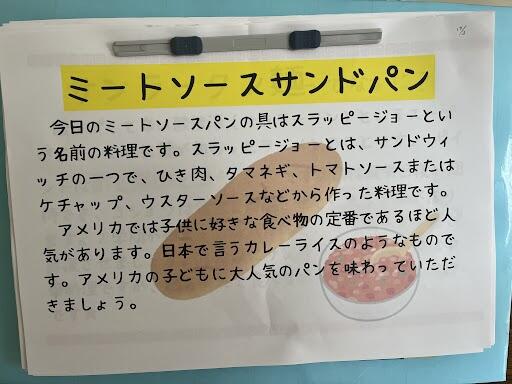 ミートソースサンドパン
今日のミートソースパンの具はスラッピージョーとい
う名前の料理です。スラッピージョーとは、サンドウィ
ッチの一つで、ひき肉、タマネギ、トマトソースまたは
ケチャップ、ウスターソースなどから作った料理です。
アメリカでは子供に好きな食べ物の定番であるほど人
気があります。日本で言うカレーライスのようなもので
す。アメリカの子どもに大人気のパンを味わっていただ
きましょう。